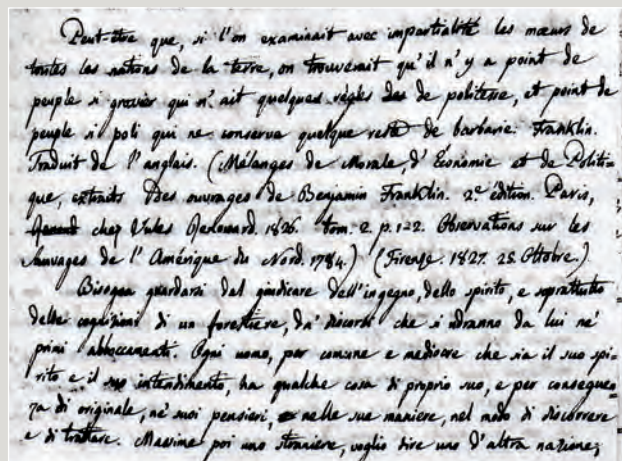 Peut-être que, si l'on examinait avec impartialité les mœurs de
toutes les nations de la terre, on trouverait qu'il n'y a point de
peuple si grossier qui n'ait quelques règles de politesse, et point de
peuple si poli qui ne conserve quelque reste de barbarie. Franklin.
Traduit de l'anglais. (Mélanges de Morale, d'Économie et de Politi-
que, extraits des ouvrages de Benjamin Franklin. 2e édition. Paris,
chez Jules Renouard. 1826. tom. 2. p. 1-2. Observations sur les
Sauvages de l'Amérique du Nord. 1784.) (Firenze. 1827. 25. Ottobre.)
Bisogna guardarsi dal giudicare dell'ingegno, dello spirito, e soprattutto
delle cognizioni di un forestiere, da' discorsi che si udranno da lui ne'
primi abboccamenti. Ogni uomo, per comune e mediocre che sia il suo spi-
rito e il suo intendimento, ha qualche cosa di proprio suo, e per conseguen-
za di originale, ne' suoi pensieri, nelle sue maniere, nel modo di discorrere
e di trattare. Massime poi uno straniere, voglio dire uno d'altra nazione;